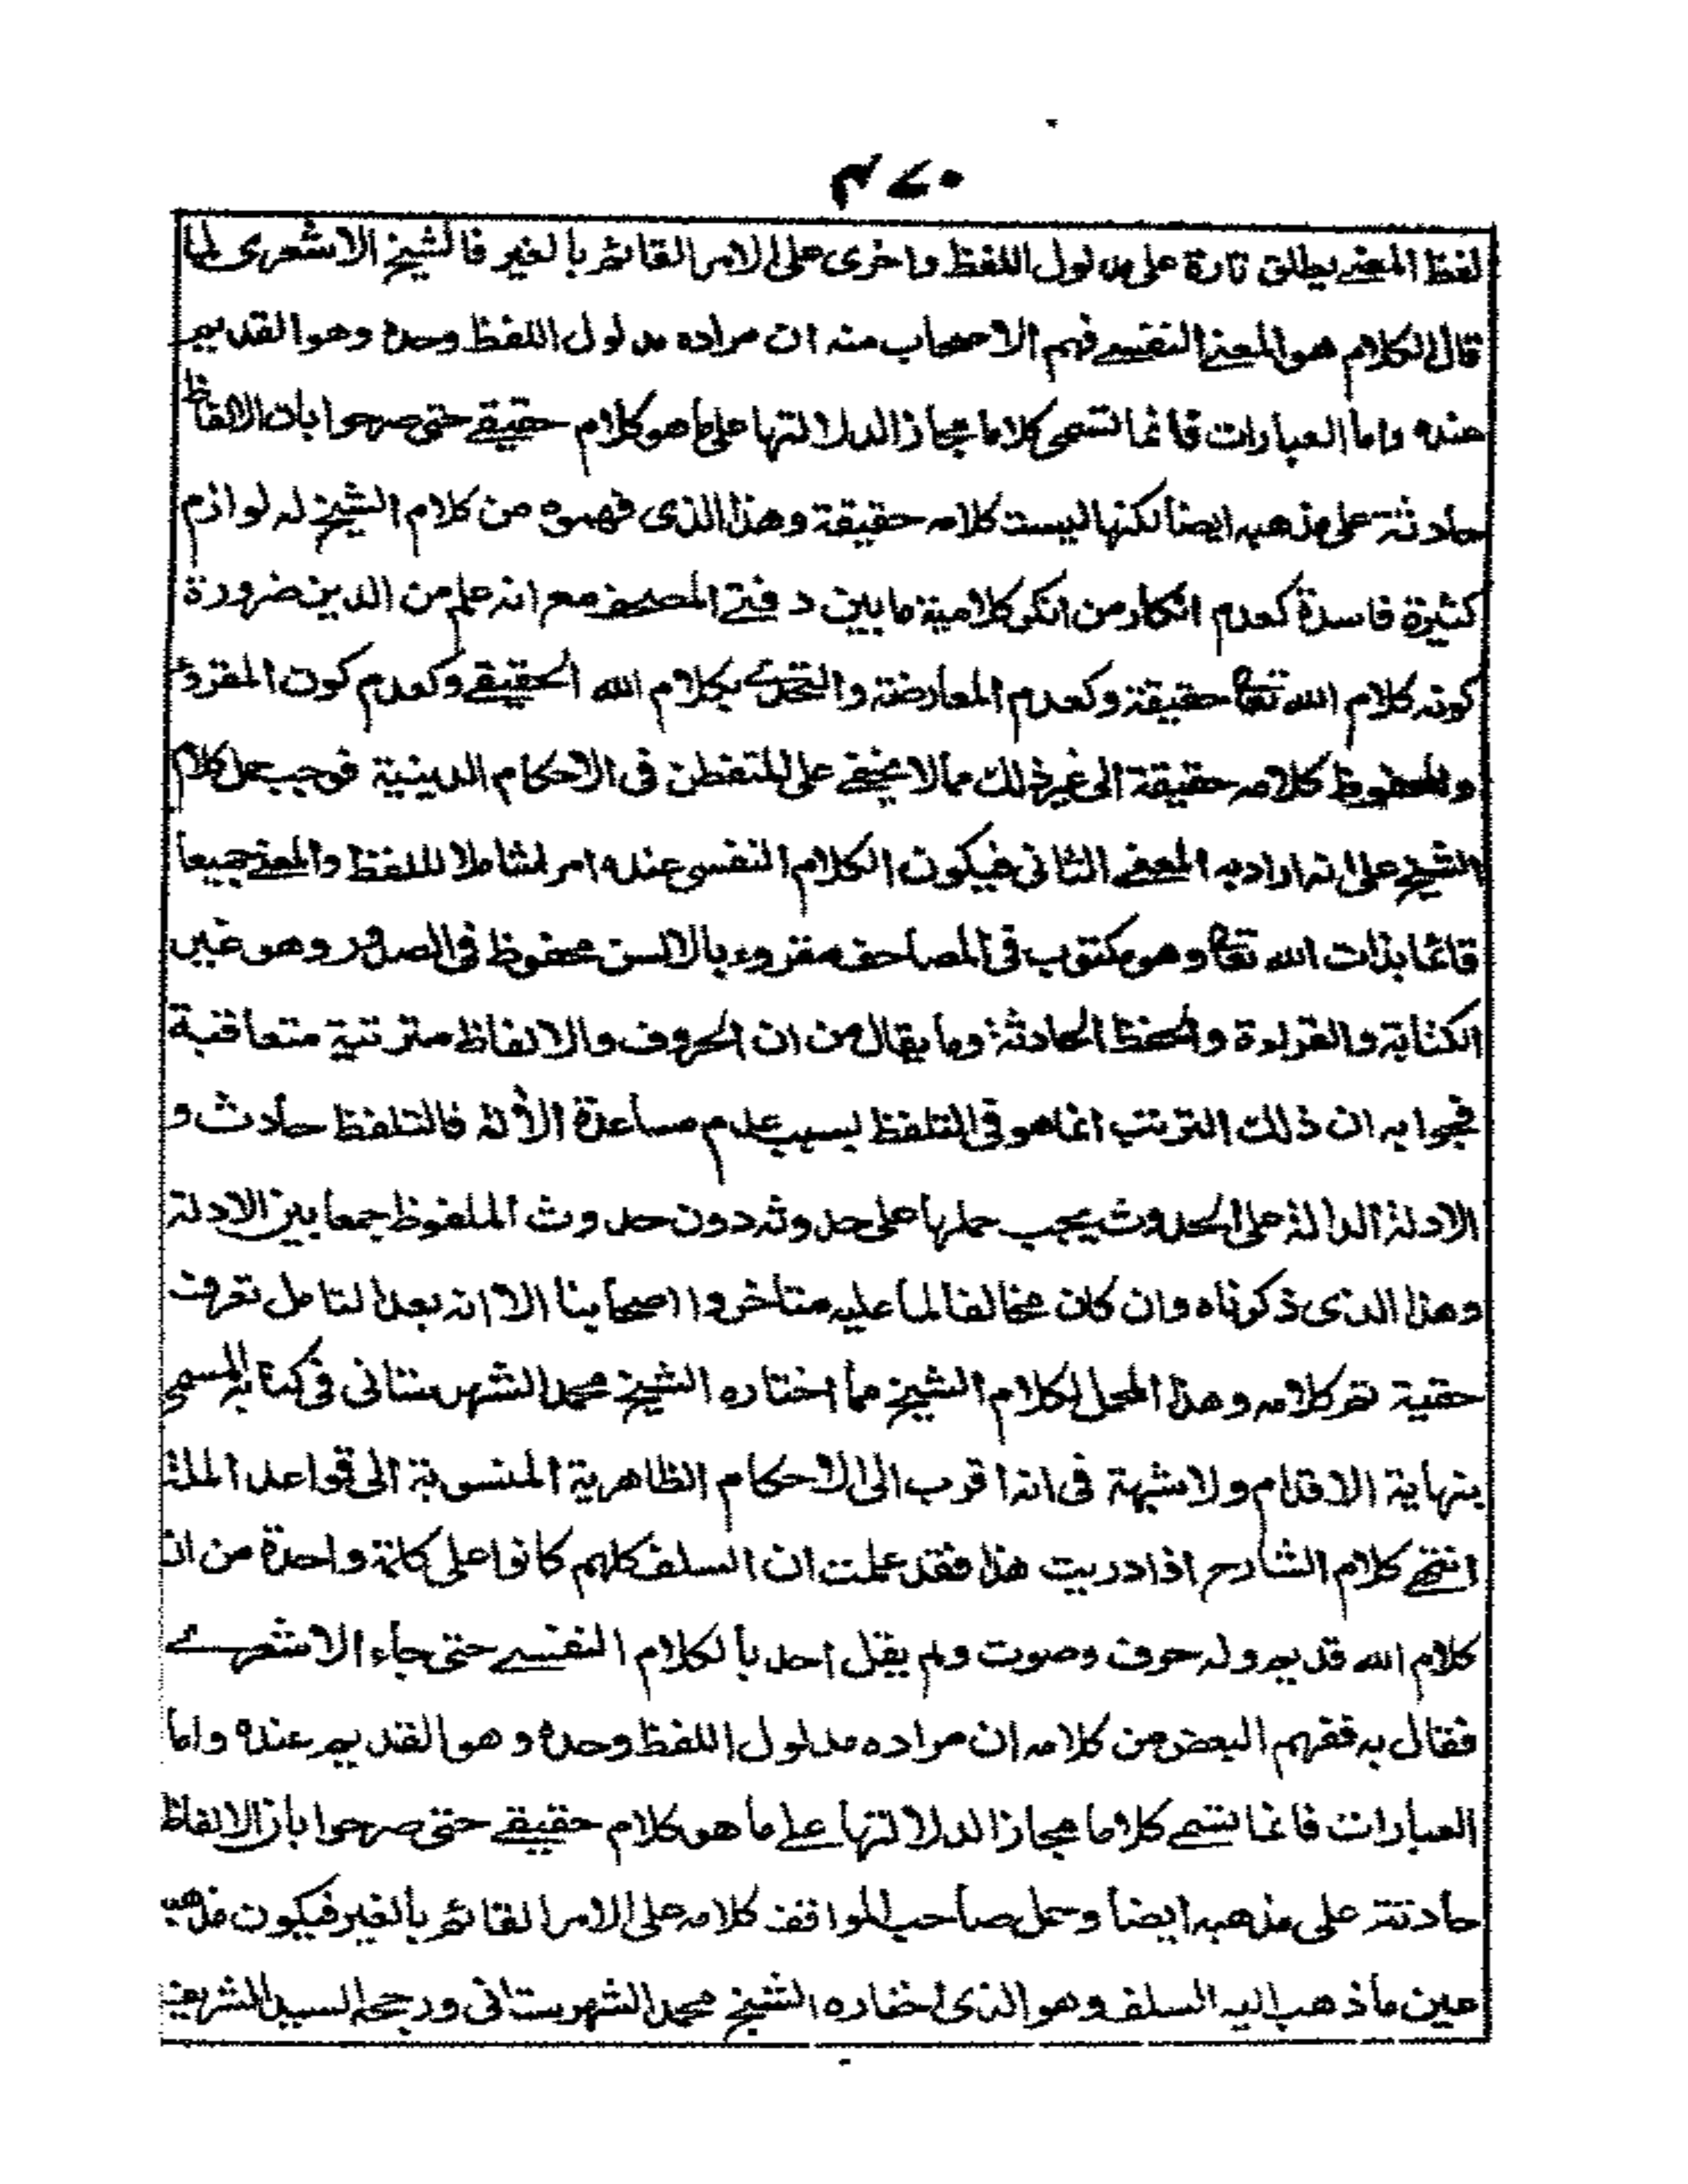 ٤٧٠
لفظ المعنے يطلق تارة على مدلول اللفظ واخرى على الامر القائم بالغير فالشيخ الاشعرى لما
قال الكلام هو المعنے النفسے فهم الاصحاب منه ان مراده مدلول اللفظ وحده وهو القديم
عنده واما العبارات فانما تسمى كلاما مجازا لدلالتها على ما هو كلام حقيقے حتى صرحوا بان الالفاظ
حادثة على مذهبه ايضا لكنها ليست كلامه حقيقة وهذا الذى فهموه من كلام الشيخ له لوازم
كثيرة فاسدة كعدم انكار من انكر كلامية ما بين دفتے المصحف مع انه علم من الدين ضرورة
كونه كلام الله تعا حقيقة وكعدم المعارضة والتحدے بكلام الله الحقيقے وكعدم كون المقروء
والمحفوظ كلامه حقيقة الى غير ذلك مما لا يخفے على المتفطن فى الاحكام الدينية فوجب حمل كلام
الشيخ على انه اراد به المعنے الثانى فيكون الكلام النفسى عنده امر لشاملا للفظ والمعنے جميعا
قائما بذات الله تعا وهو مكتوب فى المصاحف مقروء بالالسن محفوظ فى الصدور وهو غير
الكتابة والقراءة والحفظ الحادثة وما يقال من ان الحروف والالفاظ مترتبة متعاقبة
فجوابه ان ذلك الترتب انما هو فى التلفظ بسبب عدم مساعدة الألة فالتلفظ حادث و
الادلة الدالة على الحدوث يجب حملها على حدوثه دون حدوث الملفوظ جمعا بين الادلة
وهذا الذى ذكرناه وان كان مخالفا لما عليه متاخروا اصحابنا الا انه بعد التامل تعرف
حقية ثم كلامه وهذا المحل لكلام الشيخ مما اختاره الشيخ محمد الشهرستانى فى كتابه المسمى
بنهاية الاقدام ولا شبهة فى انه اقرب الى الاحكام الظاهرية المنسوبة الى قواعد الملة
انتهى كلام الشارح اذا دريت هذا فقد علمت ان السلف كلهم كانوا على كلمة واحدة من ان
كلام الله قديم وله حرف وصوت ولم يقل احد بالكلام النفسے حتى جاء الاشعرے
فقال به ففهم البعض من كلامه ان مراده مدلول اللفظ وحده وهو القديم عنده واما
العبارات فانما تسمے كلاما مجازا لدلالتها علے ما هو كلام حقيقے حتى صرحوا بان الالفاظ
حادثة على مذهبه ايضا وحمل صاحب المواقف كلامه على الامر القائم بالغير فيكون مذهبه
عين ما ذهب اليه السلف وهو الذى اختاره الشيخ محمد الشهرستانى ورجحه السيد الشريف